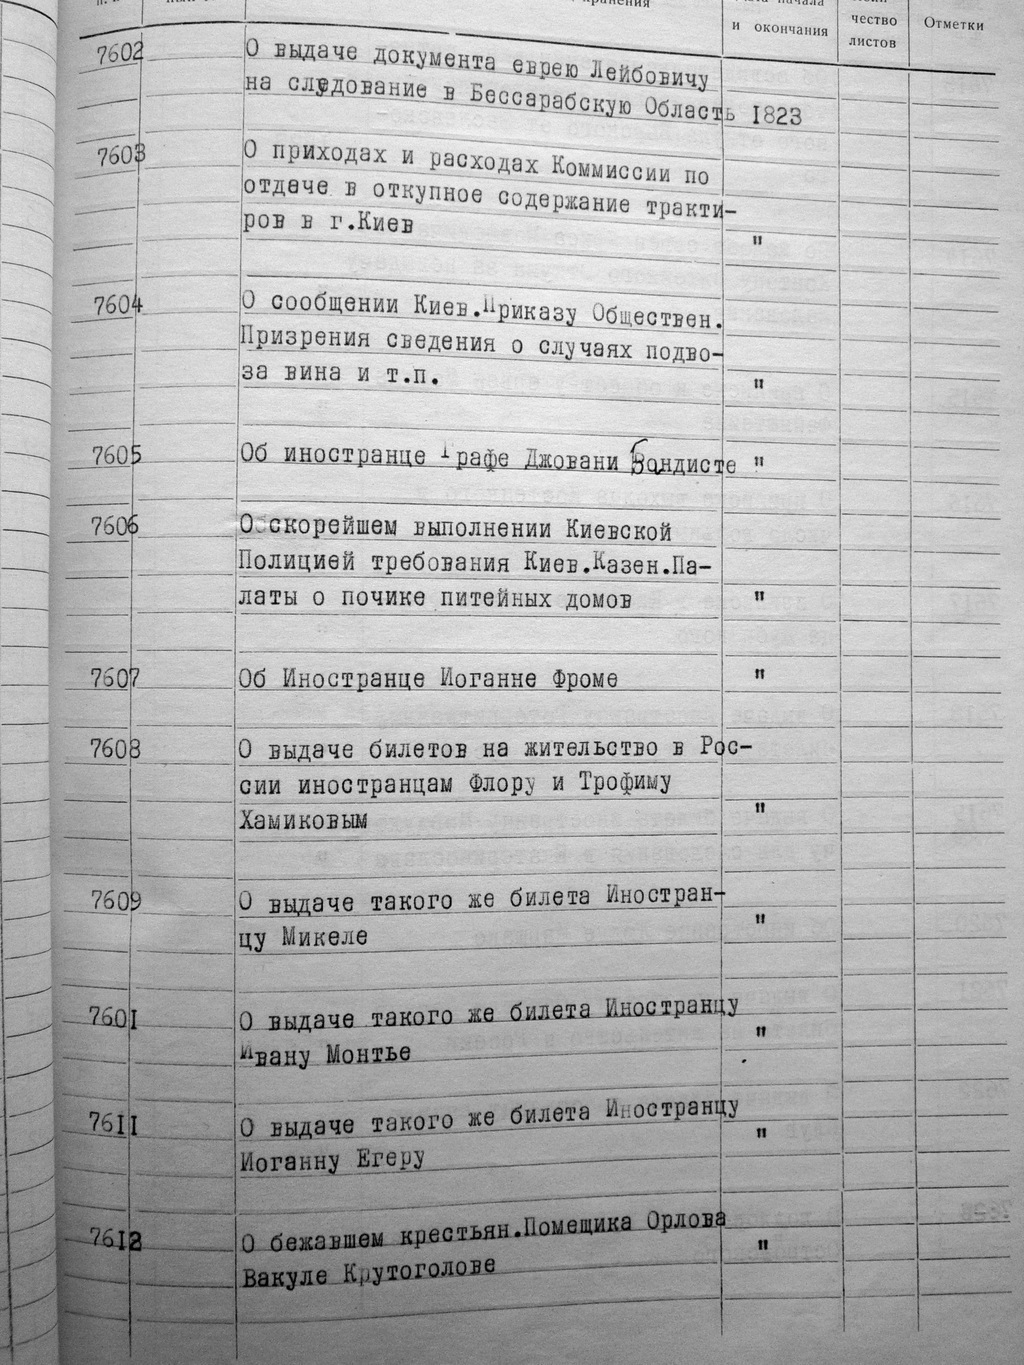 и окончания
чество
листов
Отметки
7602 О выдаче документа еврею Лейбовичу
на следование в Бессарабскую Область 1823
7603 О приходах и расходах Коммиссии по
отдаче в откупное содержание тракти-
ров в г.Киев "
7604 О сообщении Киев.Приказу Обществен.
Призрения сведения о случаях подво-
за вина и т.п. "
7605 Об иностранце Графе Джовани Бондисте "
7606 О скорейшем выполнении Киевской
Полицией требования Киев.Казен.Па-
латы о почике питейных домов "
7607 Об Иностранце Иоганне Фроме "
7608 О выдаче билетов на жительство в Рос-
сии иностранцам Флору и Трофиму
Хамиковым "
7609 О выдаче такого же билета Иностран-
цу Микеле "
7601 О выдаче такого же билета Иностранцу
Ивану Монтье "
7611 О выдаче такого же билета Иностранцу
Иоганну Егеру "
7612 О бежавшем крестьян.Помещика Орлова
Вакуле Крутоголове "